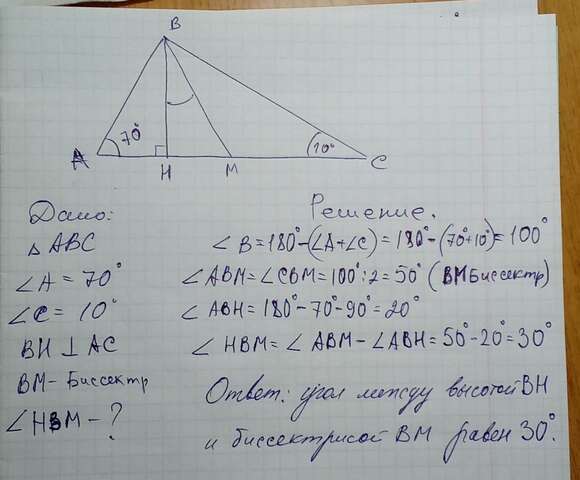 B
70°
10°
A
H
M
C
Дано:
△ ABC
∠A = 70°
∠C = 10°
BH ⊥ AC
BM - Биссектр
∠HBM - ?
Решение.
∠B = 180° - (∠A + ∠C) = 180° - (70° + 10°) = 100°
∠ABM = ∠CBM = 100° : 2 = 50° (BM Биссектр)
∠ABH = 180° - 70° - 90° = 20°
∠HBM = ∠ABM - ∠ABH = 50° - 20° = 30°
Ответ: угол между высотой BH
и биссектрисой BM равен 30°.